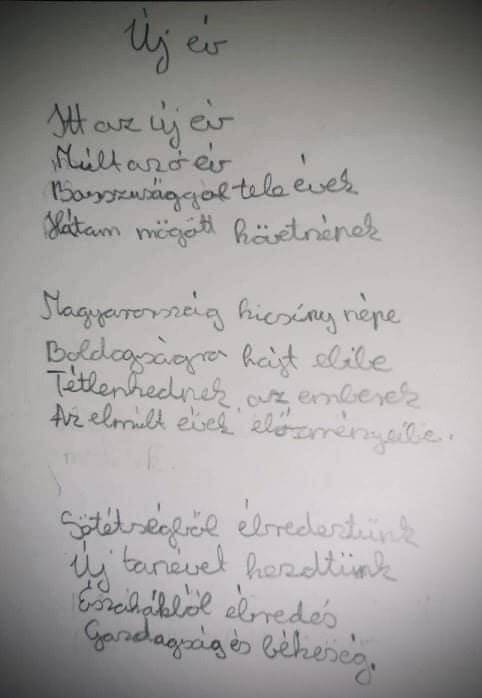 Új év
Itt az új év
Múlt az ó év
Bosszúsággal tele évek
Hátam mögött követnének
Magyarország kicsíny népe
Boldogságra hajt elibe
Tétlenkednek az emberek
Az elmúlt évek előzményeibe.
Sötétségből ébredeztünk
Új tanévet kezdtünk
Éjszakákból ébredés
Gazdagság és békeség.